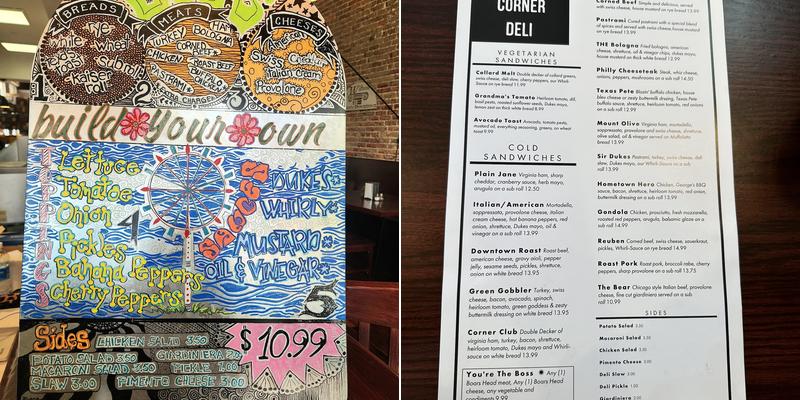 BREADS
Rye
White
Wheat
Texas
Toast
Sub roll
Kaiser
roll
1
MEATS
HAM
TURKEY
BOLOGNA
CORNED
CHICKEN
ROAST BEEF
PASTRAMI
2
CHEESES
American
Swiss
Cheddar
Italian Cream
Provolone
3
build Your own
TOPPINGS
Lettuce
Tomatoe
Onion
Pickles
Banana Peppers
Cherry Peppers
4
SAUCES
DUKE'S
WHIRLY
MUSTARD
OIL & VINEGAR
5
Sides
CHICKEN SALAD 3.50
POTATO SALAD 3.50
MACARONI SALAD 3.50
PICKLE 1.00
SLAW 3.00
PIMENTO CHEESE 3.00
$10.99
CORNER
DELI
VEGETARIAN
SANDWICHES
Collard Melt Double decker of collard greens,
swiss cheese, deli slaw, cherry peppers, our Whirli-
Sauce on rye bread 11.99
Grandma's Tomato Heirloom tomato, dill,
basil pesto, roasted sunflower seeds, Dukes mayo,
lemon zest on thick white bread 8.99
Avocado Toast Avocado, tomato, pesto,
mustard oil, everything seasoning, greens, on wheat
toast 9.99
COLD
SANDWICHES
Plain Jane Virginia ham, sharp
cheddar, cranberry sauce, herb mayo,
arugula on a sub roll 12.50
Italian/American Mortadella,
soppressata, provolone cheese, Italian
cream cheese, hot banana peppers, red
onion, shrettuce, Dukes mayo, oil &
vinegar on a sub roll 13.99
Downtown Roast Roast beef,
american cheese, gravy aioli, pepper
jelly, sesame seeds, pickles, shrettuce,
onion on white bread 13.95
Green Gobbler Turkey, swiss
cheese, bacon, avocado, spinach,
heirloom tomato, green goddess & zesty
buttermilk dressing on wheat bread 13.95
Corner Club Double Decker of
virginia ham, turkey, bacon, shrettuce,
heirloom tomato, Dukes mayo and Whirli-
sauce on white bread 13.99
You're The Boss Any (1)
Boars Head meat, Any (1) Boars Head
cheese, any vegetable and
condiments 9.99
Corned Beef Simple and delicious, served
with swiss cheese, house mustard on rye bread 13.99
Pastrami Cured pastrami with a special blend
of spices and served with swiss cheese, house mustard
on rye bread 13.99
THE Bologna Fried bologna, american
cheese, shrettuce, oil & vinegar chips, dukes mayo,
house mustard on thick white bread 12.99
Philly Cheesesteak Steak, whiz cheese,
onion, peppers, mushrooms on a sub roll 14.50
Texas Pete Blastn' buffalo chicken, house
bleu cheese or zesty buttermilk dressing, Texas Pete
buffalo sauce, shrettuce, heirloom tomato, red onions
on a sub roll 12.99
Mount Olive Virginia ham, mortadella,
soppressata, provolone and swiss cheese, shrettuce,
olive salad, oil & vinegar served on Muffolatta
bread 13.99
Sir Dukes Pastrami, turkey, swiss cheese, deli
slaw, Dukes mayo, our Whirli-Sauce on a sub
roll 13.99
Hometown Hero Chicken, George's BBQ
sauce, bacon, shrettuce, heirloom tomato, red onion,
buttermilk dressing on a sub roll 13.99
Gondola Chicken, prosciutto, fresh mozzarella,
roasted red peppers, arugula, balsamic glaze on a sub
roll 14.99
Reuben Corned beef, swiss cheese, sauerkraut,
pickles, Whirli-Sauce on rye bread 14.99
Roast Pork Roast pork, broccoli rabe, cherry
peppers, sharp provolone on a sub roll 13.75
The Bear Chicago style Italian beef, provolone
cheese, fine cut giardiniera served on a sub
roll 10.99
SIDES
Potato Salad 3.50
Macaroni Salad 3.50
Chicken Salad 3.50
Pimento Cheese 3.00
Deli Slaw 3.00
Deli Pickle 1.00
Giardiniera 2.00